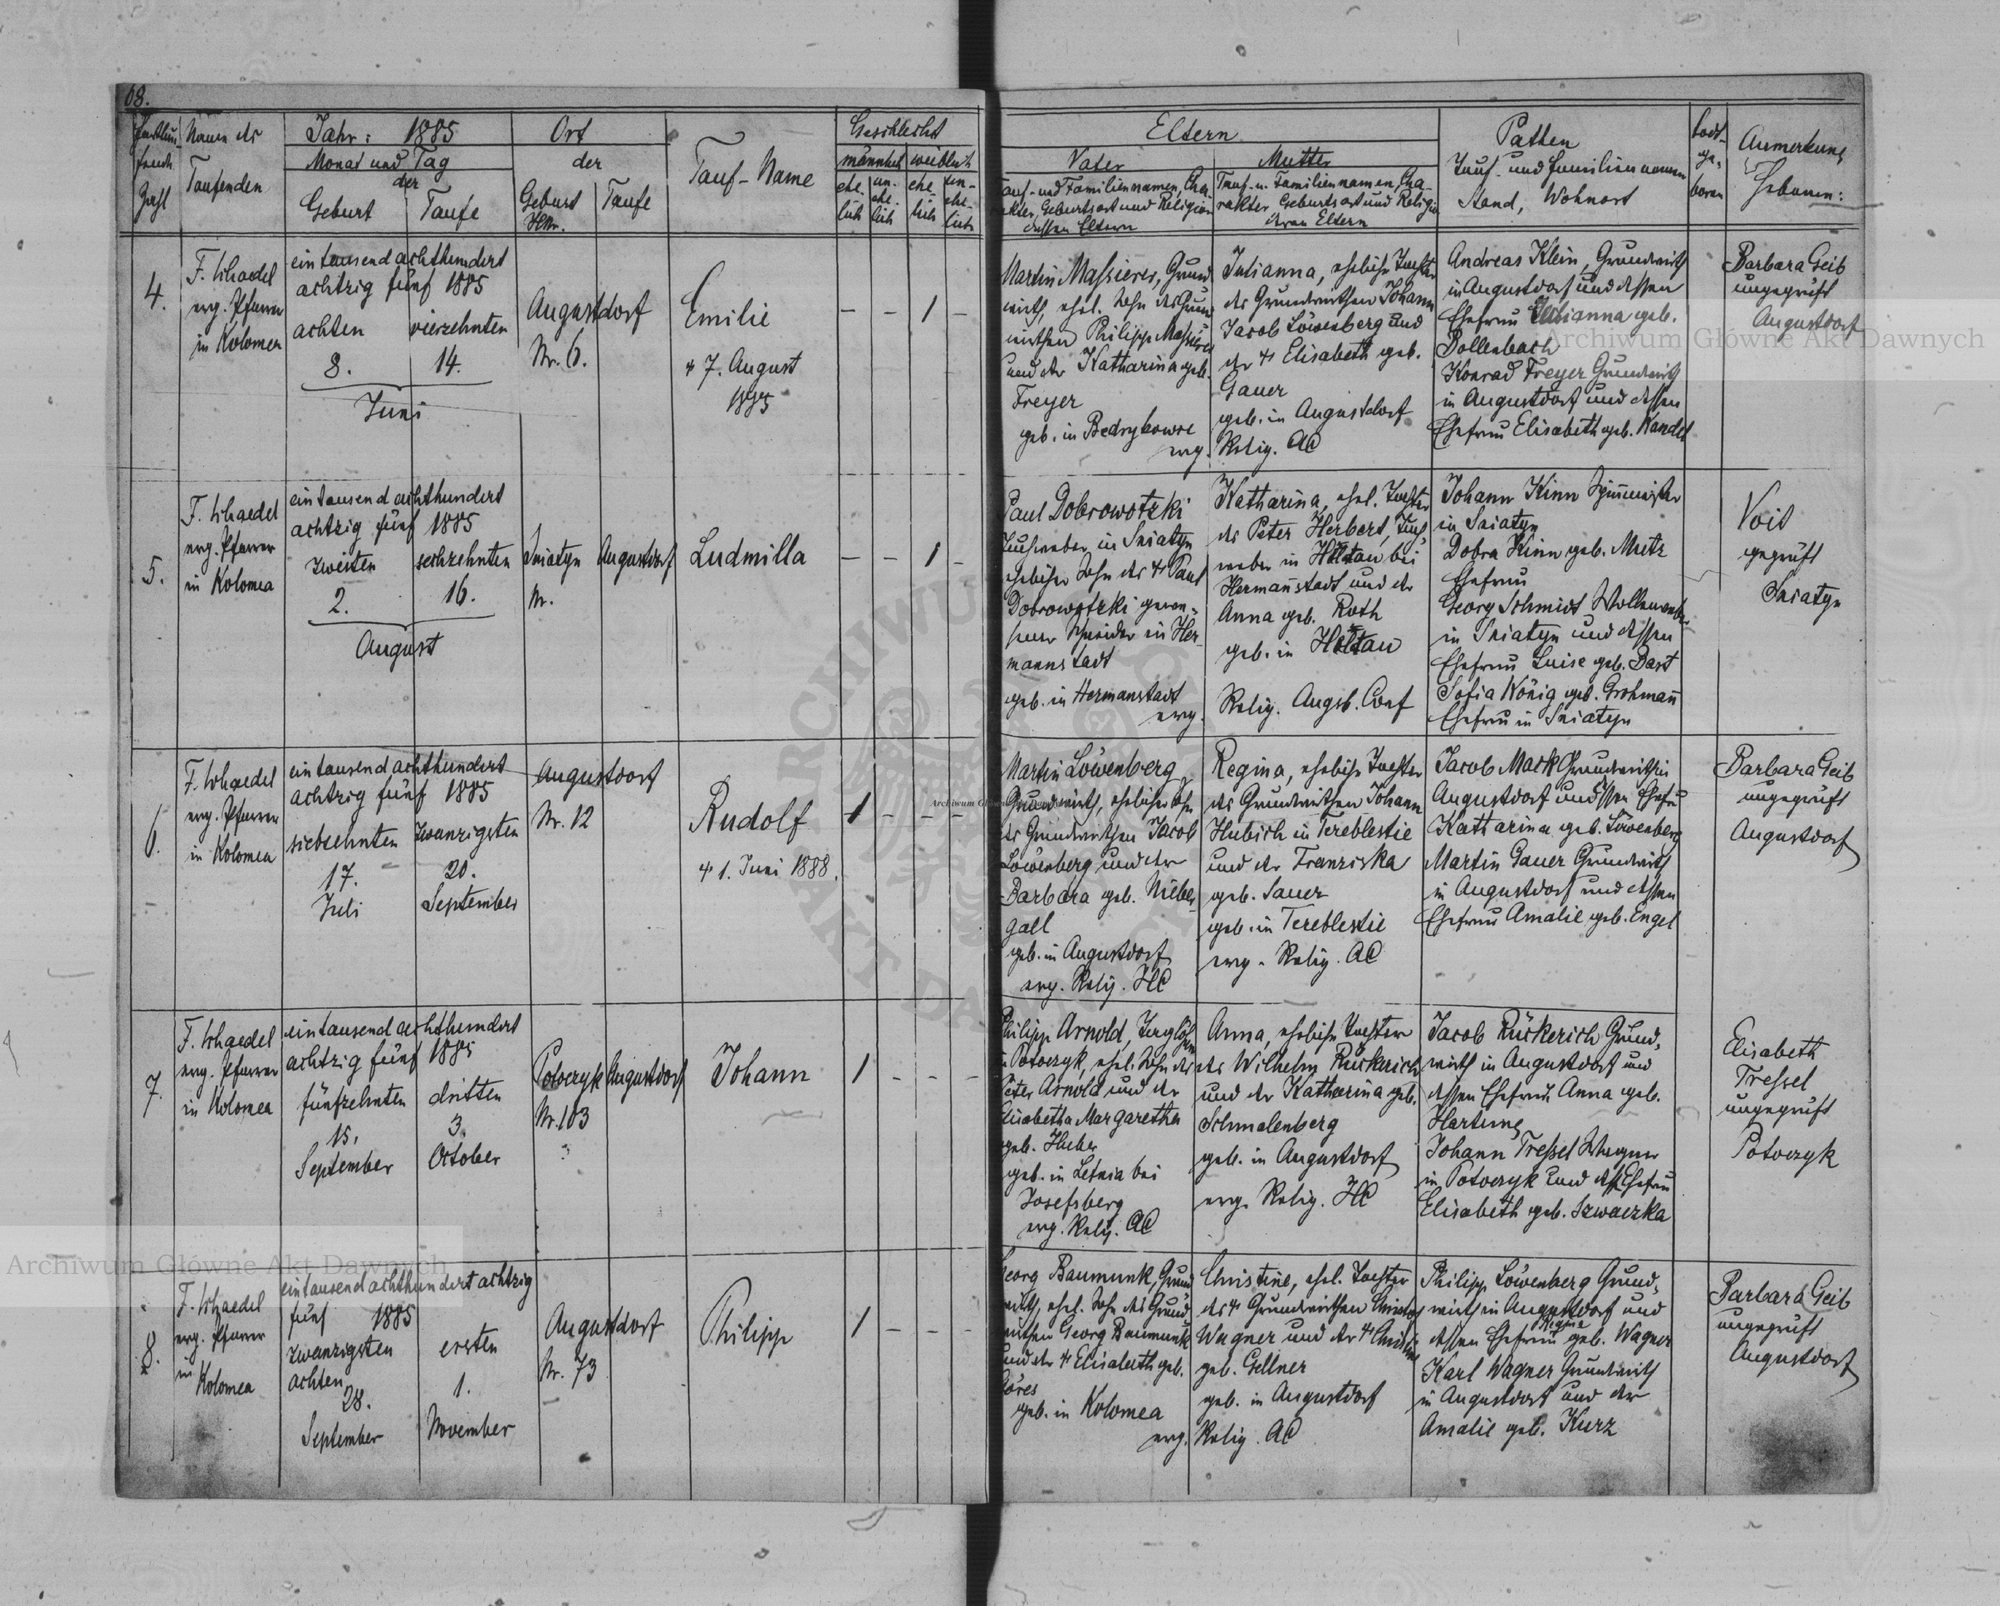 68.
Fortlaufende Zahl
Name des
Taufenden
Jahr: 1885
Monat und Tag
der
Geburt
Taufe
Ort
der
Geburt
HNr.
Taufe
Tauf-Name
Geschlecht
männlich
weiblich
ehe-
lich
un-
ehe-
lich
ehe-
lich
un-
ehe-
lich
Eltern
Vater
Tauf- und Familiennamen, Cha-
rakter, Geburtsort und Religion
dessen Eltern
Mutter
Tauf- u. Familiennamen, Cha-
rakter Geburtsort und Religion
deren Eltern
Pathen
Tauf- und Familiennamen
Stand, Wohnort
Todt-
ge-
boren
Anmerkung
Hebamme:
4.
F. Schaedel
evg. Pfarrer
in Kolomea
eintausendachthundert
achtzig fünf 1885
achten
8.
vierzehnten
14.
Juni
Augustdorf
Nr. 6.
Emilie
+ 7. August
1885
— — 1 —
Martin Massierer, Grund
wirth, ehel. Sohn des Grund
wirthen Philipp Massierer
und der Katharina geb.
Freyer
geb. in Bedrykowce
evg.
Julianna, eheliche Tochter
des Grundwirthen Johann
Jacob Löwenberg und
der + Elisabeth geb.
Gauer
geb. in Augustdorf
Relig. AC
Andreas Klein, Grundwirth
in Augustdorf und dessen
Ehefrau Julianna geb.
Dollenbach
Konrad Freyer Grundwirth
in Augustdorf und dessen
Ehefrau Elisabeth geb. Kandel
Barbara Geib
ungeprüft
Augustdorf
5.
F. Schaedel
evg. Pfarrer
in Kolomea
eintausend achthundert
achtzig fünf 1885
zweiten
2.
sechzehnten
16.
August
Sniatyn
Nr.
Augustdorf
Ludmilla
— — 1 —
Paul Dobrowotzki
Tuchweber in Sniatyn
ehelicher Sohn des + Paul
Dobrowotzki gewe-
sener Schneider in Her-
mannstadt
geb. in Hermanstadt
evg.
Katharina, ehel. Tochter
des Peter Herbert, Tuch
weber in Heltau bei
Hermanstadt und der
Anna geb. Roth
geb. in Heltau
Relig. Augsb. Conf
Johann Kinn Spinnmeister
in Sniatyn
Dobra Kinn geb. Metz
Ehefrau
Georg Schmidt Wollenweber
in Sniatyn und dessen
Ehefrau Luise geb. Bast
Sofia König geb. Grohmann
Ehefrau in Sniatyn
Voit
geprüft
Sniatyn
6.
F. Schaedel
evg. Pfarrer
in Kolomea
eintausend achthundert
achtzig fünf 1885
siebzehnten
17.
Juli
zwanzigsten
20.
September
Augustdorf
Nr. 12
Rudolf
+ 1. Juni 1888.
1 — — —
Martin Löwenberg
Grundwirth, ehelicher Sohn
des Grundwirthen Jacob
Löwenberg und der
Barbara geb. Nieber
gall
geb. in Augustdorf
evg. Relig. HC
Regina, eheliche Tochter
des Grundwirthen Johann
Hubich in Tereblestie
und der Franziska
geb. Sauer
geb. in Tereblestie
evg. Relig. AC
Jacob Mack Grundwirth in
Augustdorf und dessen Ehefrau
Katharina geb. Löwenberg
Martin Gauer Grundwirth
in Augustdorf und dessen
Ehefrau Amalie geb. Engel
Barbara Geib
ungeprüft
Augustdorf
7.
F. Schaedel
evg. Pfarrer
in Kolomea
eintausend achthundert
achtzig fünf 1885
fünfzehnten
15.
September
dritten
3.
October
Potoczyk
Nr. 103
Augustdorf
Johann
1 — — —
Philipp Arnold, Taglöhner
in Potoczyk, ehel. Sohn des
Peter Arnold und der
Elisabetha Margaretha
geb. Huber
geb. in Letnia bei
Josefsberg
evg. Relig. AC
Anna, eheliche Tochter
des Wilhelm Rückerich
und der Katharina geb.
Schmalenberg
geb. in Augustdorf
evg. Relig. HC
Jacob Rückerich Grund-
wirth in Augustdorf und
dessen Ehefrau Anna geb.
Hartung
Johann Tressel Wagner
in Potoczyk und dess. Ehefrau
Elisabeth geb. Szwaczka
Elisabeth
Tressel
ungeprüft
Potoczyk
8.
F. Schaedel
evg. Pfarrer
in
Kolomea
eintausend achthundert achtzig
fünf 1885
zwanzigsten
achten
28.
September
ersten
1.
November
Augustdorf
Nr. 73
Philipp
1 — — —
Georg Baumunk, Grund
wirth, ehel. Sohn des Grund
wirthen Georg Baumunk
und der + Elisabeth geb.
geb. in Kolomea
evg.
Christine, ehel. Tochter
des + Grundwirthen Christof
Wagner und der + Christine
geb. Gellner
geb. in Augustdorf
Relig. AC
Philipp Löwenberg Grund-
wirth in Augustdorf und
dessen Ehefrau Regina geb. Wagner
Karl Wagner Grundwirth
in Augustdorf und der
Amalie geb. Kurz
Barbara Geib
ungeprüft
Augustdorf
Archiwum Główne Akt Dawnych
Archiwum Główne Akt Dawnych